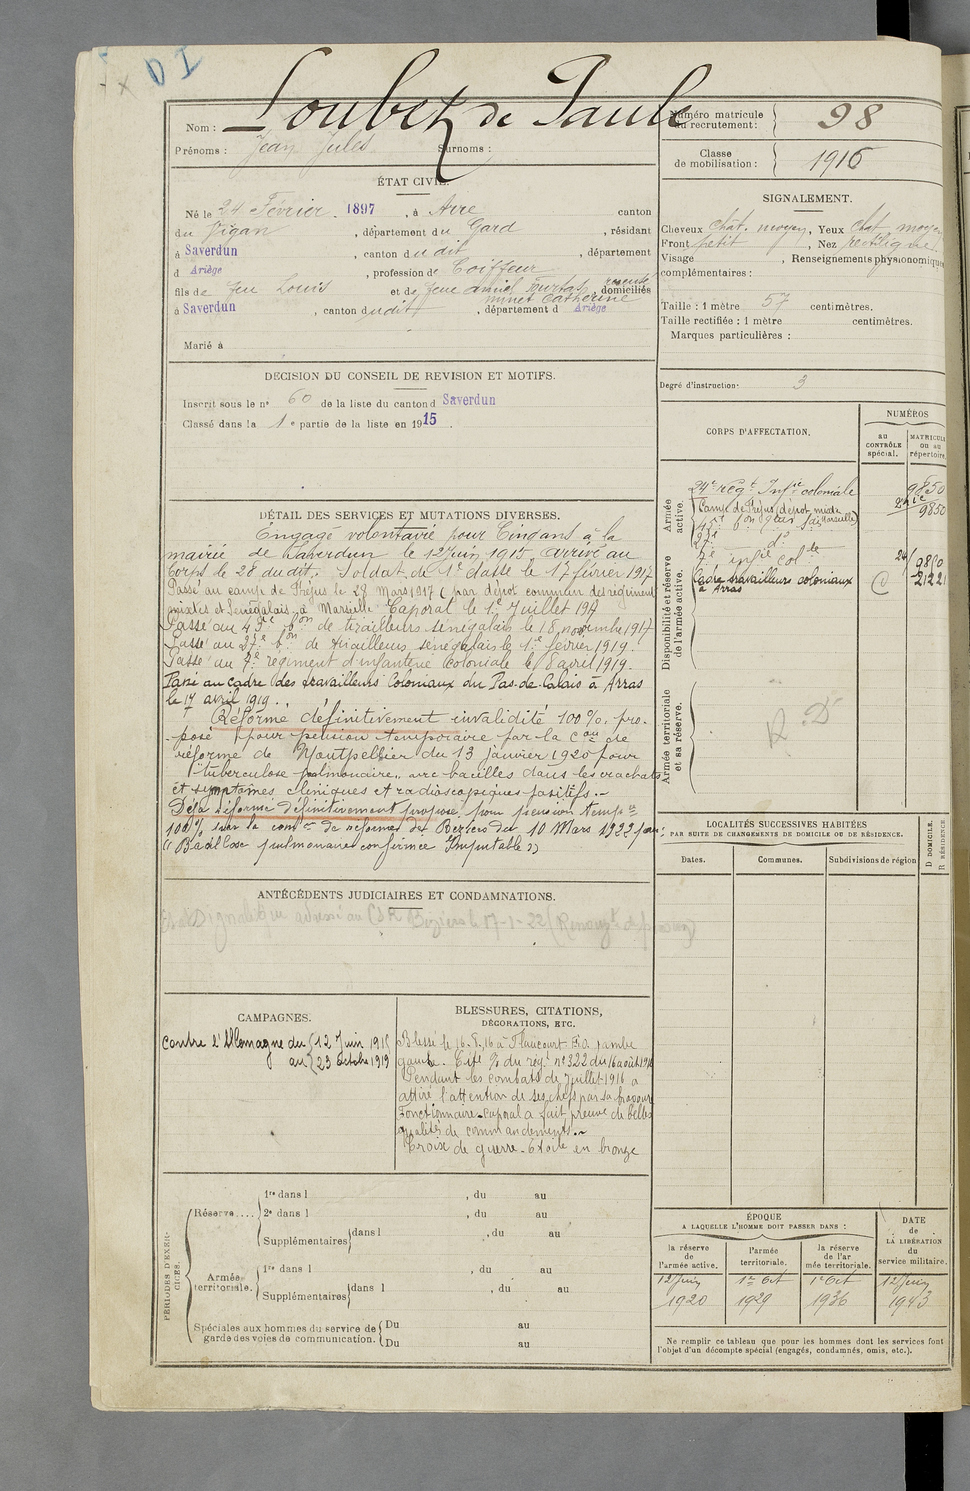 D I
Nom : Loubet de Paule
Prénoms : Jean Jules Surnoms :
Numéro matricule du recrutement : 98
Classe de mobilisation : 1916
ÉTAT CIVIL.
Né le 24 Février 1897, à Arre canton
du Vigan, département du Gard, résidant
à Saverdun, canton dudit, département
d Ariège, profession de Coiffeur
fils de feu Louis et de feue domiciliés
minet Catherine
à Saverdun, canton dudit, département d Ariège
Marié à
SIGNALEMENT.
Cheveux chât. moyen, Yeux chat moyen
Front petit, Nez rectiligne
Visage , Renseignements physionomiques
complémentaires :
Taille : 1 mètre 57 centimètres.
Taille rectifiée : 1 mètre centimètres.
Marques particulières :
Degré d'instruction : 3
DÉCISION DU CONSEIL DE REVISION ET MOTIFS.
Inscrit sous le n° 60 de la liste du canton d Saverdun
Classé dans la 1e partie de la liste en 1915.
CORPS D'AFFECTATION.
NUMÉROS
au CONTRÔLE spécial.
MATRICULE ou au répertoire.
Armée active.
24e Régt Infie coloniale 9850
(Camp de Fréjus (dépôt mixte Marseille) 9850
45e bon
27e do
7e infie colle 24 9850
Disponibilité et réserve de l'armée active.
Cadre travailleurs coloniaux 2122
à Arras
Armée territoriale et sa réserve.
R. D
DÉTAIL DES SERVICES ET MUTATIONS DIVERSES.
Engagé volontaire pour Cinq ans à la
mairie de Saverdun le 12 Juin 1915, arrivé au
Corps le 28 du dit. Soldat de 1e classe le 17 février 1917
Passé au camp de Fréjus le 28 Mars 1917 (par dépôt commun des régiments
mixtes et Sénégalais à Marseille. Caporal le 1e Juillet 1917
Passé au 45e bon de tirailleurs sénégalais le 18 novembre 1917
Passé au 27e bon de tirailleurs sénégalais le 1e février 1919.
Passé au 7e régiment d'infanterie Coloniale le 8 avril 1919.
Passé au cadre des travailleurs Coloniaux du Pas-de-Calais à Arras
le 17 avril 1919.
Réformé définitivement invalidité 100%. pro-
posé pour pension temporaire par la Con de
réforme de Montpellier du 13 janvier 1920 pour
"tuberculose pulmonaire" avec bacilles dans les crachats
et symptômes cliniques et radioscopiques positifs.-
Déjà réformé définitivement proposé pour pension tempre
100% par la comon de réforme de Béziers du 10 Mars 1922 pour :
" Bacillose pulmonaire confirmée Imputable "
LOCALITÉS SUCCESSIVES HABITÉES
PAR SUITE DE CHANGEMENTS DE DOMICILE OU DE RÉSIDENCE.
Dates. Communes. Subdivisions de région
D DOMICILE.
R RÉSIDENCE
ANTÉCÉDENTS JUDICIAIRES ET CONDAMNATIONS.
Signalétique adressé au CSR Béziers le 17-1-22
CAMPAGNES.
Contre l'Allemagne du 12 Juin 1915
au 23 octobre 1919
BLESSURES, CITATIONS,
DÉCORATIONS, ETC.
Blessé le 16.8.16 à Flaucourt E.O. jambe
gauche. Cité % du régt n° 322 du 16 août 1916
Pendant les combats de Juillet 1916 a
attiré l'attention de ses chefs par sa bravoure
Fonctionnaire-Caporal a fait preuve de belles
qualités de commandements.-
Croix de guerre - Etoile en bronze
PÉRIODES D'EXERCICES.
Réserve....
1re dans l , du au
2e dans l , du au
Supplémentaires dans l , du au
Armée territoriale.
1re dans l , du au
Supplémentaires dans l , du au
Spéciales aux hommes du service de garde des voies de communication.
Du au
Du au
ÉPOQUE
A LAQUELLE L'HOMME DOIT PASSER DANS :
DATE de LA LIBÉRATION du service militaire.
la réserve de l'armée active.
l'armée territoriale.
la réserve de l'armée territoriale.
12 Juin 1920
1er Oct 1929
1er Oct 1936
12 Juin 1943
Ne remplir ce tableau que pour les hommes dont les services font
l'objet d'un décompte spécial (engagés, condamnés, omis, etc.).